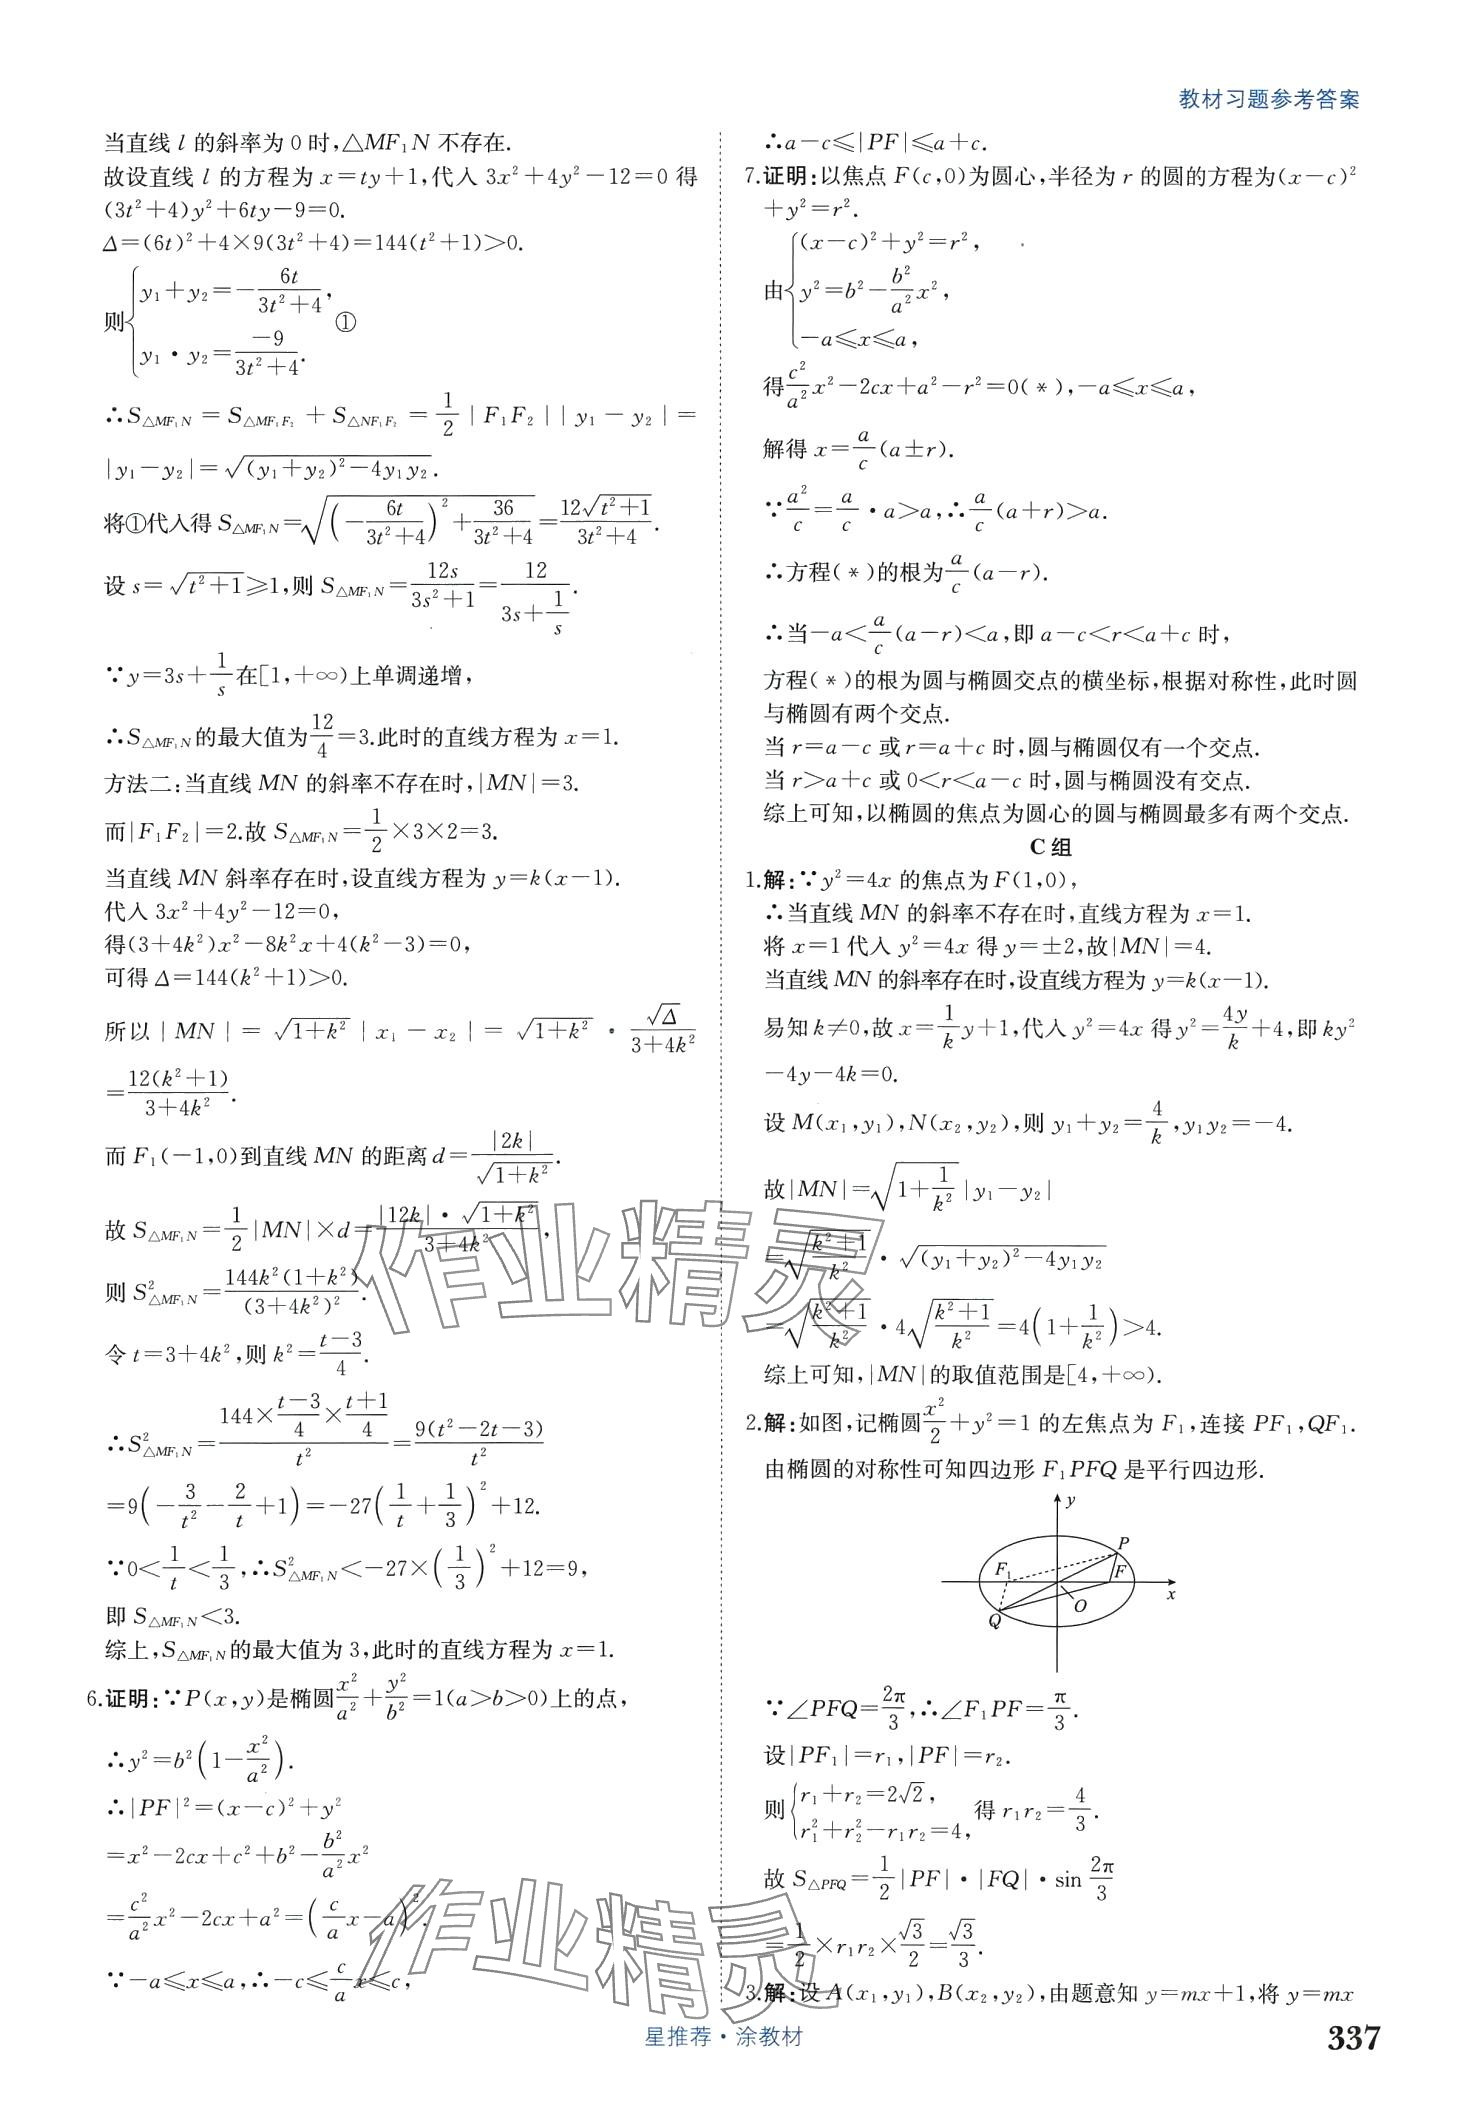 教材习题参考答案
当直线 l 的斜率为 0 时,△MF₁N 不存在.
故设直线 l 的方程为 x=ty+1,代入 3x²+4y²-12=0 得
(3t²+4)y²+6ty-9=0.
Δ=(6t)²+4×9(3t²+4)=144(t²+1)>0.
则{y₁+y₂=-6t/(3t²+4), y₁·y₂=-9/(3t²+4). ①
∴S△MF₁N=S△MF₁F₂+S△NF₁F₂=1/2|F₁F₂||y₁-y₂|=
|y₁-y₂|=√((y₁+y₂)²-4y₁y₂).
将①代入得 S△MF₁N=√((-6t/(3t²+4))²+36/(3t²+4))=12√(t²+1)/(3t²+4).
设 s=√(t²+1)≥1,则 S△MF₁N=12s/(3s²+1)=12/(3s+1/s).
∵y=3s+1/s在[1,+∞)上单调递增,
∴S△MF₁N的最大值为12/4=3.此时的直线方程为 x=1.
方法二:当直线 MN 的斜率不存在时,|MN|=3.
而|F₁F₂|=2.故 S△MF₁N=1/2×3×2=3.
当直线 MN 斜率存在时,设直线方程为 y=k(x-1).
代入 3x²+4y²-12=0,
得(3+4k²)x²-8k²x+4(k²-3)=0,
可得 Δ=144(k²+1)>0.
所以|MN|=√(1+k²)|x₁-x₂|=√(1+k²)·√Δ/(3+4k²)
=12(k²+1)/(3+4k²).
而 F₁(-1,0)到直线 MN 的距离 d=|2k|/√(1+k²).
故 S△MF₁N=1/2|MN|×d=|12k|·√(1+k²)/(3+4k²),
则 S²△MF₁N=144k²(1+k²)/(3+4k²)².
令 t=3+4k²,则 k²=(t-3)/4.
∴S²△MF₁N=(144×(t-3)/4×(t+1)/4)/t²=9(t²-2t-3)/t²
=9(-3/t²-2/t+1)=-27(1/t+1/3)²+12.
∵0<1/t<1/3,∴S²△MF₁N<-27×(1/3)²+12=9,
即 S△MF₁N<3.
综上,S△MF₁N的最大值为 3,此时的直线方程为 x=1.
6.证明:∵P(x,y)是椭圆x²/a²+y²/b²=1(a>b>0)上的点,
∴y²=b²(1-x²/a²).
∴|PF|²=(x-c)²+y²
=x²-2cx+c²+b²-b²/a²x²
=c²/a²x²-2cx+a²=(c/a x-a)².
∵-a≤x≤a,∴-c≤c/a x≤c,
∴a-c≤|PF|≤a+c.
7.证明:以焦点 F(c,0)为圆心,半径为 r 的圆的方程为(x-c)²
+y²=r².
由{(x-c)²+y²=r², y²=b²-b²/a²x², -a≤x≤a,
得c²/a²x²-2cx+a²-r²=0(*),-a≤x≤a,
解得 x=a/c(a±r).
∵a²/c=a/c·a>a,∴a/c(a+r)>a.
∴方程(*)的根为a/c(a-r).
∴当-a<a/c(a-r)<a,即 a-c<r<a+c 时,
方程(*)的根为圆与椭圆交点的横坐标,根据对称性,此时圆
与椭圆有两个交点.
当 r=a-c 或 r=a+c 时,圆与椭圆仅有一个交点.
当 r>a+c 或 0<r<a-c 时,圆与椭圆没有交点.
综上可知,以椭圆的焦点为圆心的圆与椭圆最多有两个交点.
C 组
1.解:∵y²=4x 的焦点为 F(1,0),
∴当直线 MN 的斜率不存在时,直线方程为 x=1.
将 x=1 代入 y²=4x 得 y=±2,故|MN|=4.
当直线 MN 的斜率存在时,设直线方程为 y=k(x-1).
易知 k≠0,故 x=1/k y+1,代入 y²=4x 得 y²=4y/k+4,即 ky²
-4y-4k=0.
设 M(x₁,y₁),N(x₂,y₂),则 y₁+y₂=4/k,y₁y₂=-4.
故|MN|=√(1+1/k²)|y₁-y₂|
=√((k²+1)/k²)·√((y₁+y₂)²-4y₁y₂)
=√((k²+1)/k²)·4√((k²+1)/k²)=4(1+1/k²)>4.
综上可知,|MN|的取值范围是[4,+∞).
2.解:如图,记椭圆x²/2+y²=1 的左焦点为 F₁,连接 PF₁,QF₁.
由椭圆的对称性可知四边形 F₁PFQ 是平行四边形.
y
P
F₁ F
x
O
Q
∵∠PFQ=2π/3,∴∠F₁PF=π/3.
设|PF₁|=r₁,|PF|=r₂.
则{r₁+r₂=2√2, r₁²+r₂²-r₁r₂=4, 得 r₁r₂=4/3.
故 S△PFQ=1/2|PF|·|FQ|·sin 2π/3
=1/2×r₁r₂×√3/2=√3/3.
3.解:设 A(x₁,y₁),B(x₂,y₂),由题意知 y=mx+1,将 y=mx
作业精灵
作业精灵
星推荐·涂教材
337